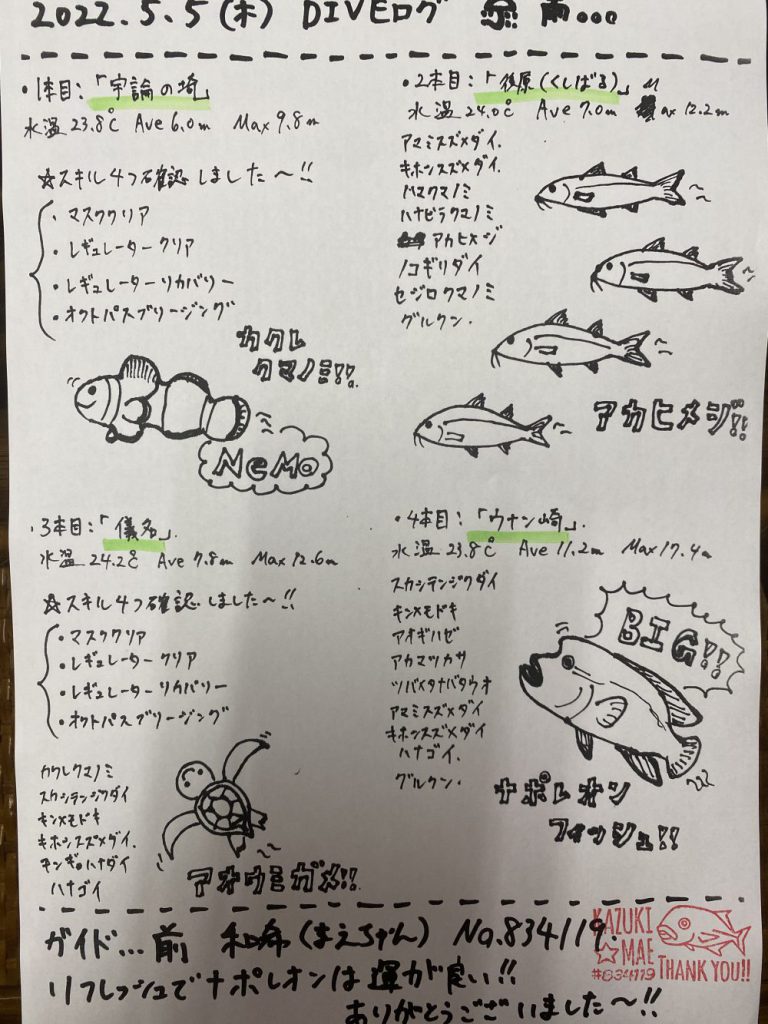 2022.5.5(木) DIVEログ
・1本目:「宇論の埼」
水温23.8℃ Ave 6.0m Max 9.8m
☆スキル4つ確認しました〜!!
・マスククリア
・レギュレータークリア
・レギュレーターリカバリー
・オクトパスブリージング
カクレ
クマノミ!!
NeMo
・2本目:「後原(くしばる)」
水温24.0℃ Ave 7.0m Max 12.2m
アマミスズメダイ.
キホシスズメダイ.
ハマクマノミ
ハナビラクマノミ
アカヒメジ
ノコギリダイ
セジロクマノミ
グルクン.
アカヒメジ!!
・3本目:「儀名」
水温24.2℃ Ave 7.8m Max 12.6m
☆スキル4つ確認しました〜!!
・マスククリア
・レギュレータークリア
・レギュレーターリカバリー
・オクトパスブリージング
カクレクマノミ
スカシテンジクダイ
キンメモドキ
キホシスズメダイ.
キンギョハナダイ
ハナゴイ
アオウミガメ!!
・4本目:「ウナン崎」
水温23.8℃ Ave 11.2m Max 17.4m
スカシテンジクダイ
キンメモドキ
アオギハゼ
アカマツカサ
ツバメタナバタウオ
アマミスズメダイ
キホシスズメダイ
ハナゴイ.
グルクン.
BIG!!
ナポレオン
フィッシュ!!
ガイド...前 和希(まえちゃん) No.834119
リフレッシュでナポレオンは運が良い!!
ありがとうございました〜!!
KAZUKI
☆MAE
#834119 THANK YOU!!